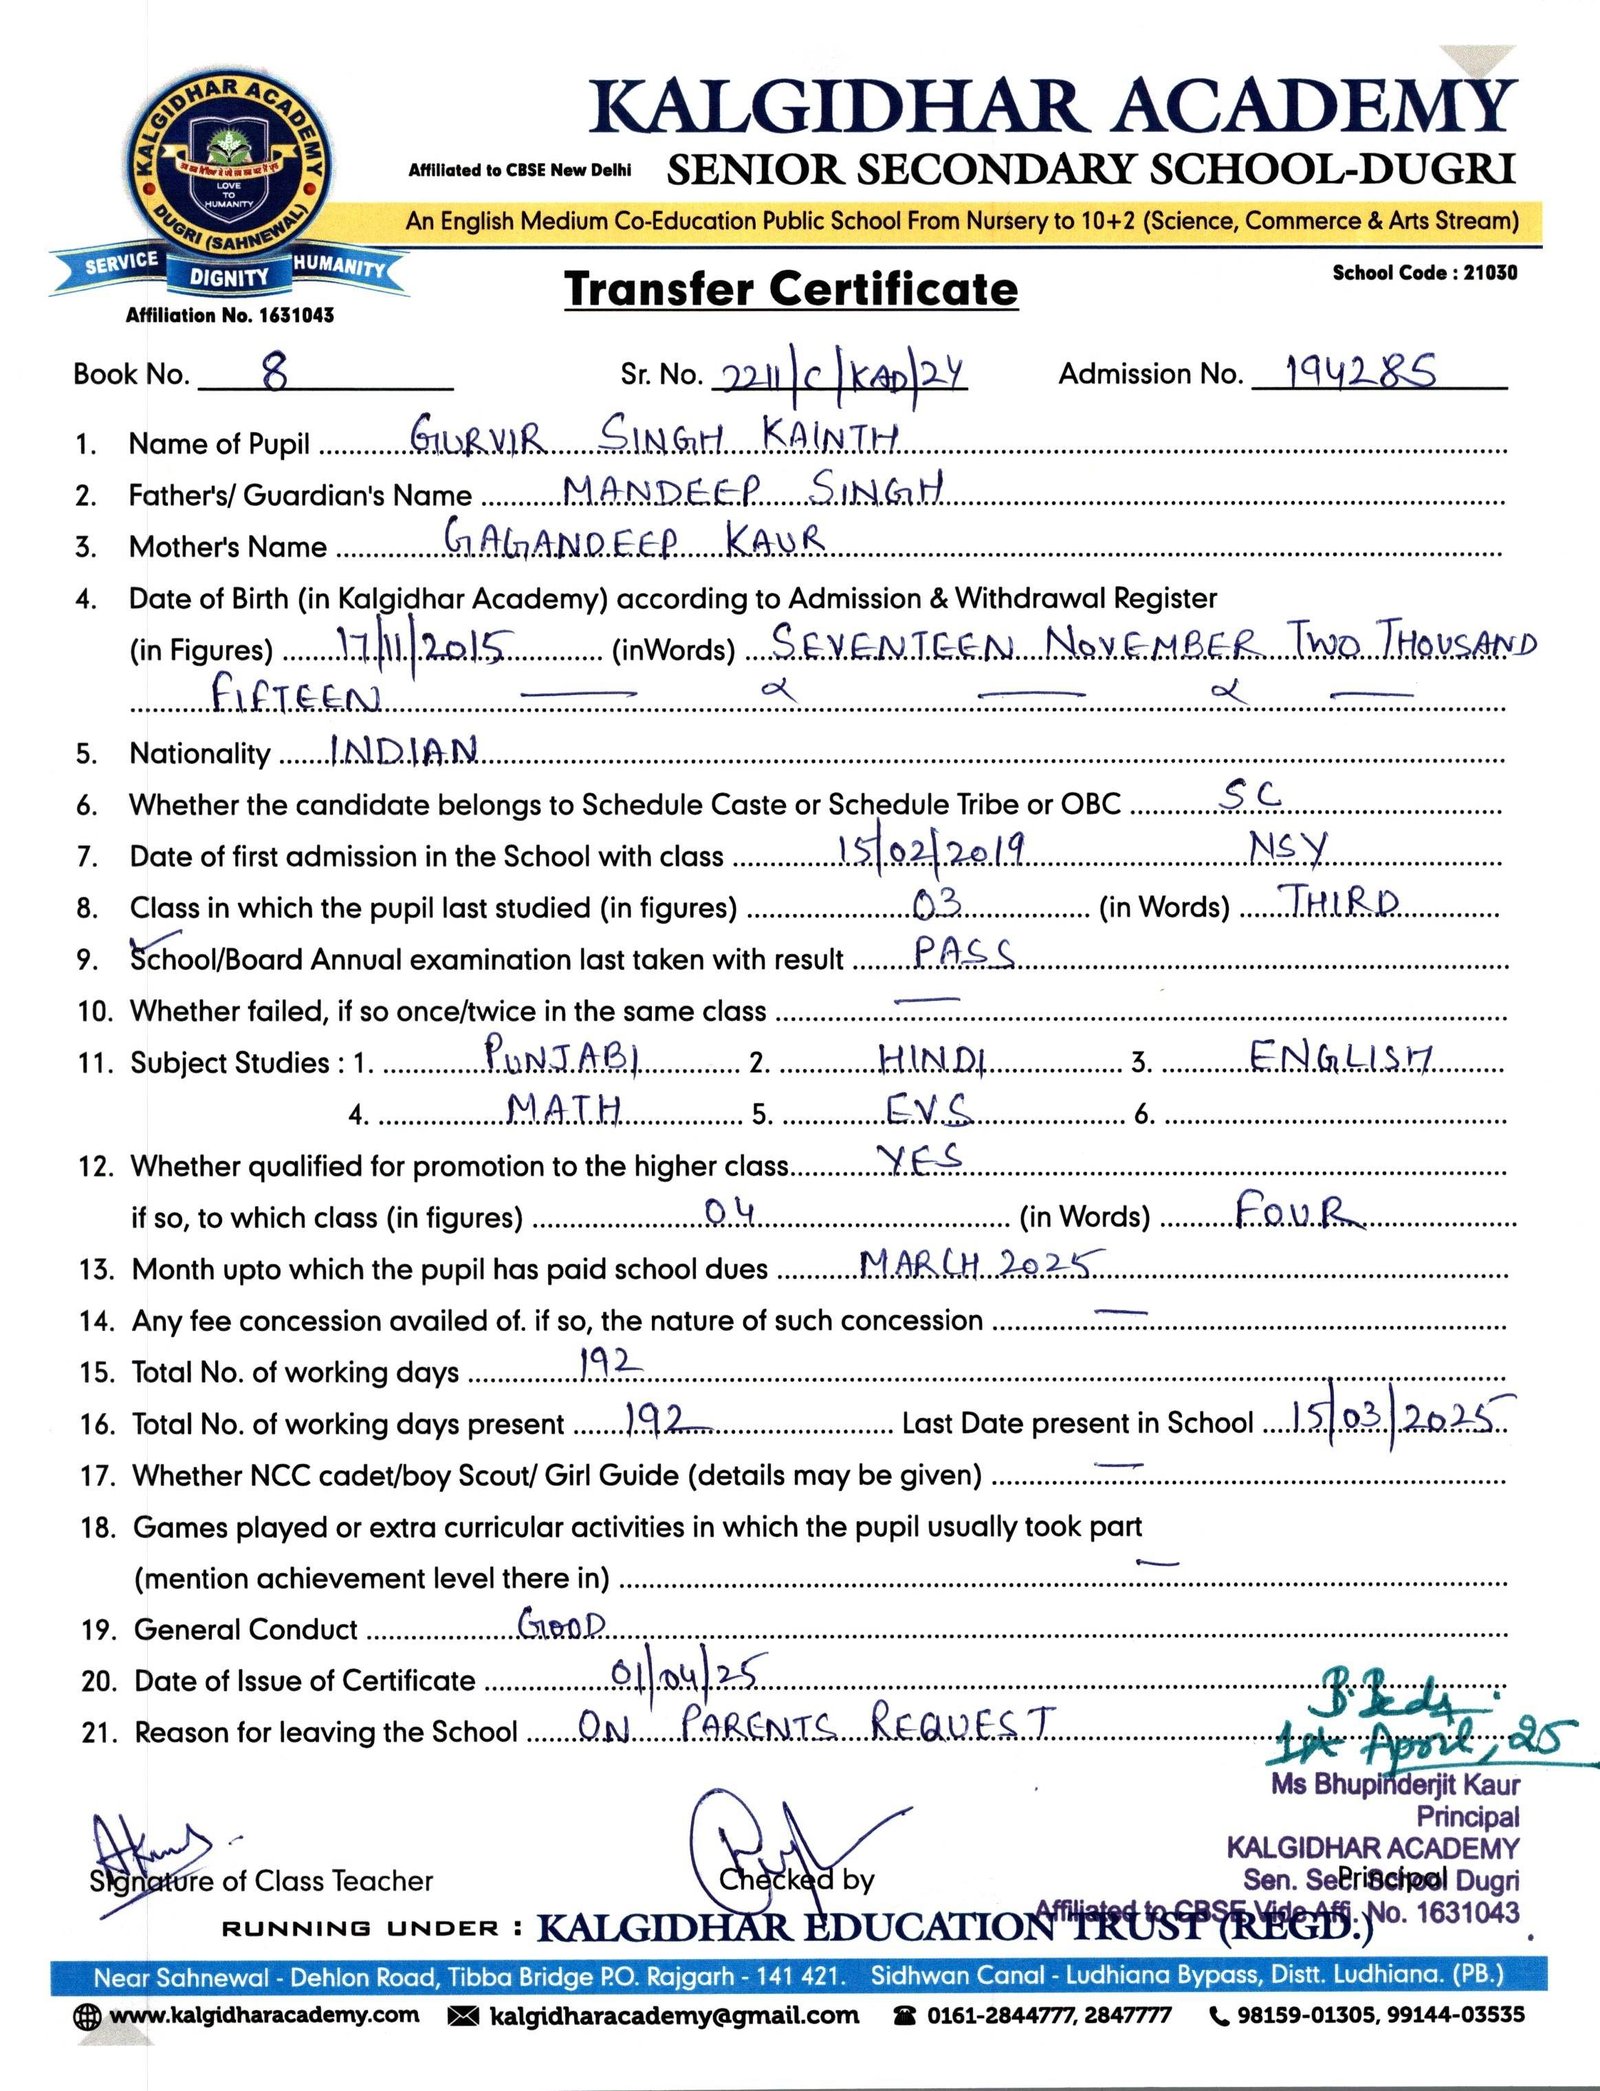 KALGIDHAR ACADEMY
DUGRI (SAHNEWAL)
LOVE
TO
HUMANITY
SERVICE DIGNITY HUMANITY
Affiliation No. 1631043
KALGIDHAR ACADEMY
Affiliated to CBSE New Delhi SENIOR SECONDARY SCHOOL-DUGRI
An English Medium Co-Education Public School From Nursery to 10+2 (Science, Commerce & Arts Stream)
Transfer Certificate School Code : 21030
Book No. 8 Sr. No. 2211/C/KAD/24 Admission No. 194285
1. Name of Pupil GURVIR SINGH KAINTH
2. Father's/ Guardian's Name MANDEEP SINGH
3. Mother's Name GAGANDEEP KAUR
4. Date of Birth (in Kalgidhar Academy) according to Admission & Withdrawal Register
(in Figures) 17/11/2015 (inWords) SEVENTEEN NOVEMBER TWO THOUSAND
FIFTEEN
5. Nationality INDIAN
6. Whether the candidate belongs to Schedule Caste or Schedule Tribe or OBC SC
7. Date of first admission in the School with class 15/02/2019 NSY
8. Class in which the pupil last studied (in figures) 03 (in Words) THIRD
9. School/Board Annual examination last taken with result PASS
10. Whether failed, if so once/twice in the same class —
11. Subject Studies : 1. PUNJABI 2. HINDI 3. ENGLISH
4. MATH 5. EVS 6.
12. Whether qualified for promotion to the higher class YES
if so, to which class (in figures) 04 (in Words) FOUR
13. Month upto which the pupil has paid school dues MARCH 2025
14. Any fee concession availed of. if so, the nature of such concession —
15. Total No. of working days 192
16. Total No. of working days present 192 Last Date present in School 15/03/2025
17. Whether NCC cadet/boy Scout/ Girl Guide (details may be given) —
18. Games played or extra curricular activities in which the pupil usually took part
(mention achievement level there in) —
19. General Conduct GOOD
20. Date of Issue of Certificate 01/04/25
21. Reason for leaving the School ON PARENTS REQUEST
1st April, 25
Ms Bhupinderjit Kaur
Principal
KALGIDHAR ACADEMY
Sen. Sec. School Dugri
Affiliated to CBSE Vide Affi. No. 1631043
Signature of Class Teacher Checked by Principal
RUNNING UNDER : KALGIDHAR EDUCATION TRUST (REGD.)
Near Sahnewal - Dehlon Road, Tibba Bridge P.O. Rajgarh - 141 421. Sidhwan Canal - Ludhiana Bypass, Distt. Ludhiana. (PB.)
www.kalgidharacademy.com kalgidharacademy@gmail.com 0161-2844777, 2847777 98159-01305, 99144-03535